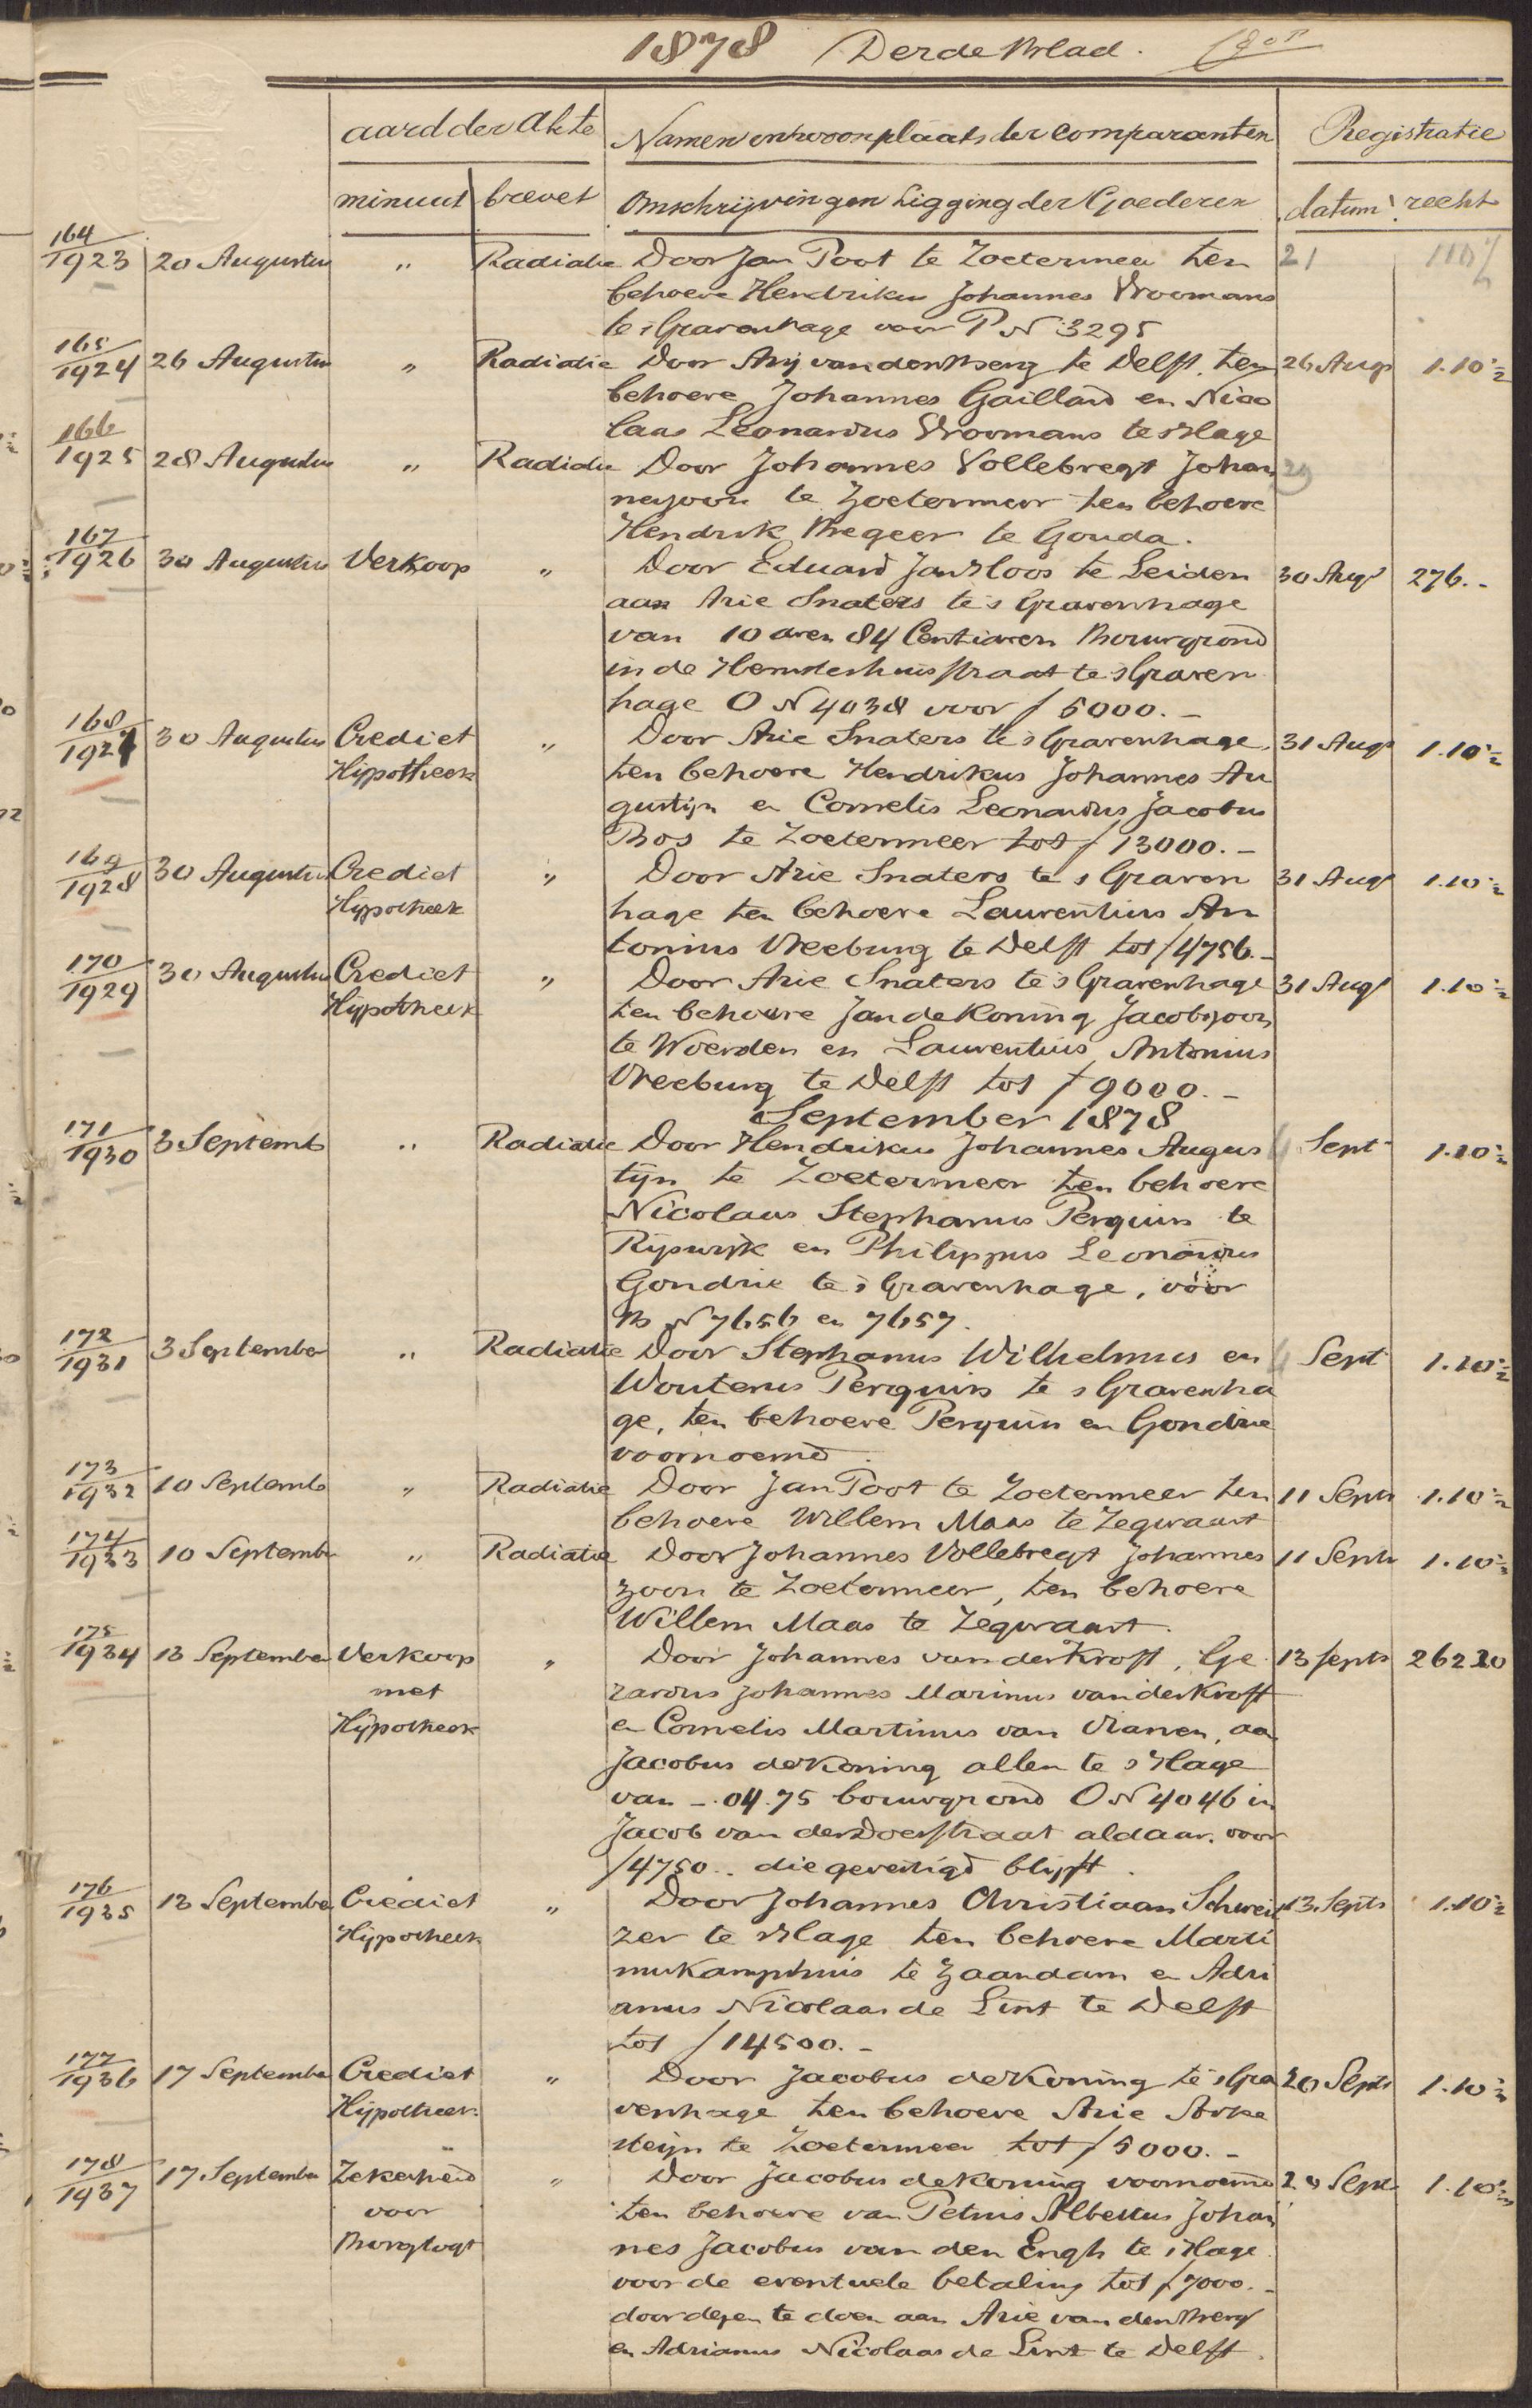 1878 Derde Blad.
aard der Akte Namen en woonplaats der Comparanten Registratie
minuut brevet Omschrijving en Ligging der Goederen datum recht
164/1923 20 Augustus " Radiatie Door Jan Poot te Zoetermeer ten 21 110½
behoeve Hendrikus Johannes Vroomans
te 's Gravenhage voor P N 3295
165/1924 26 Augustus " Radiatie Door Arij van den Berg te Delft, ten 26 Aug 1.10½
behoeve Johannes Gaillard en Nico
laas Leonardus Vroomans te 's Hage
166/1925 28 Augustus " Radiatie Door Johannes Vollebregt Johan 29
neszoon te Zoetermeer ten behoeve
Hendrik Bregeer te Gouda.
167/1926 30 Augustus Verkoop " Door Eduard Jan Kloos te Leiden 30 Aug 276.-
aan Arie Snaters te 's Gravenhage
van 10 aren 84 Centiaren Bouwgrond
in de Hemsterhuisstraat te 's Graven
hage O N 4038 voor ƒ 5000.-
168/1927 30 Augustus Crediet " Door Arie Snaters te 's Gravenhage, 31 Aug 1.10½
Hijpotheek ten behoeve Hendrikus Johannes Au
gustijn en Cornelis Leonardus Jacobus
Bos te Zoetermeer tot ƒ 13000.-
169/1928 30 Augustus Crediet " Door Arie Snaters te 's Graven 31 Aug 1.10½
Hypotheek hage ten behoeve Laurentius An
tonius Vreeburg te Delft tot ƒ 4756.-
170/1929 30 Augustus Crediet " Door Arie Snaters te 's Gravenhage 31 Aug 1.10½
Hijpotheek ten behoeve Jan de Koning Jacobszoon
te Woerden en Laurentius Antonius
Vreeburg te Delft tot ƒ 9000.-
September 1878
171/1930 3 Septemb " Radiatie Door Hendrikus Johannes Augus 4 Sept 1.10½
tijn te Zoetermeer ten behoeve
Nicolaas Stephanus Perquin te
Rijswijk en Philippus Leonardus
Gondrie te 's Gravenhage, voor
B N 7656 en 7657.
172/1931 3 September " Radiatie Door Stephanus Wilhelmus en 4 Sept 1.10½
Wouterus Perquin te 's Gravenha
ge, ten behoeve Perquin en Gondrie
voornoemd.
173/1932 10 Septemb " Radiatie Door Jan Poot te Zoetermeer ten 11 Sept 1.10½
behoeve Willem Maas te Zegwaart
174/1933 10 Septembe " Radiatie Door Johannes Vollebregt Johannes 11 Sept 1.10½
zoon te Zoetermeer, ten behoeve
Willem Maas te Zegwaart.
175/1934 13 September Verkoop " Door Johannes van der Kroft, Ge 13 Sept 262 20
met rardus Johannes Marinus van der Kroft
Hijpotheek en Cornelis Martinus van Vianen, aa
Jacobus de Koning allen te 's Hage
van -.04.75 bouwgrond O N 4046 in
Jacob van der Doesstraat aldaar. voor
ƒ 4750.- die gevestigd blijft.
176/1935 13 September Crediet " Door Johannes Christiaan Schweit 13 Sept 1.10½
Hijpotheek zer te 's Hage ten behoeve Marti
nus Kamphuis te Zaandam en Adri
anus Nicolaas de Lint te Delft
tot ƒ 14500.-
177/1936 17 September Crediet " Door Jacobus de Koning te 's Gra 20 Sept 1.10½
Hijpotheek venhage ten behoeve Arie Arke
steijn te Zoetermeer tot ƒ 5000.-
178/1937 17 September Zekerheid " Door Jacobus de Koning voornoemd 20 Sept 1.10½
voor ten behoeve van Petrus Albertus Johan
Borgtogt nes Jacobus van den Engh te 's Hage
voor de eventuele betaling tot ƒ 7000.-
door dezen te doen aan Arie van den Berg
en Adrianus Nicolaas de Lint te Delft.